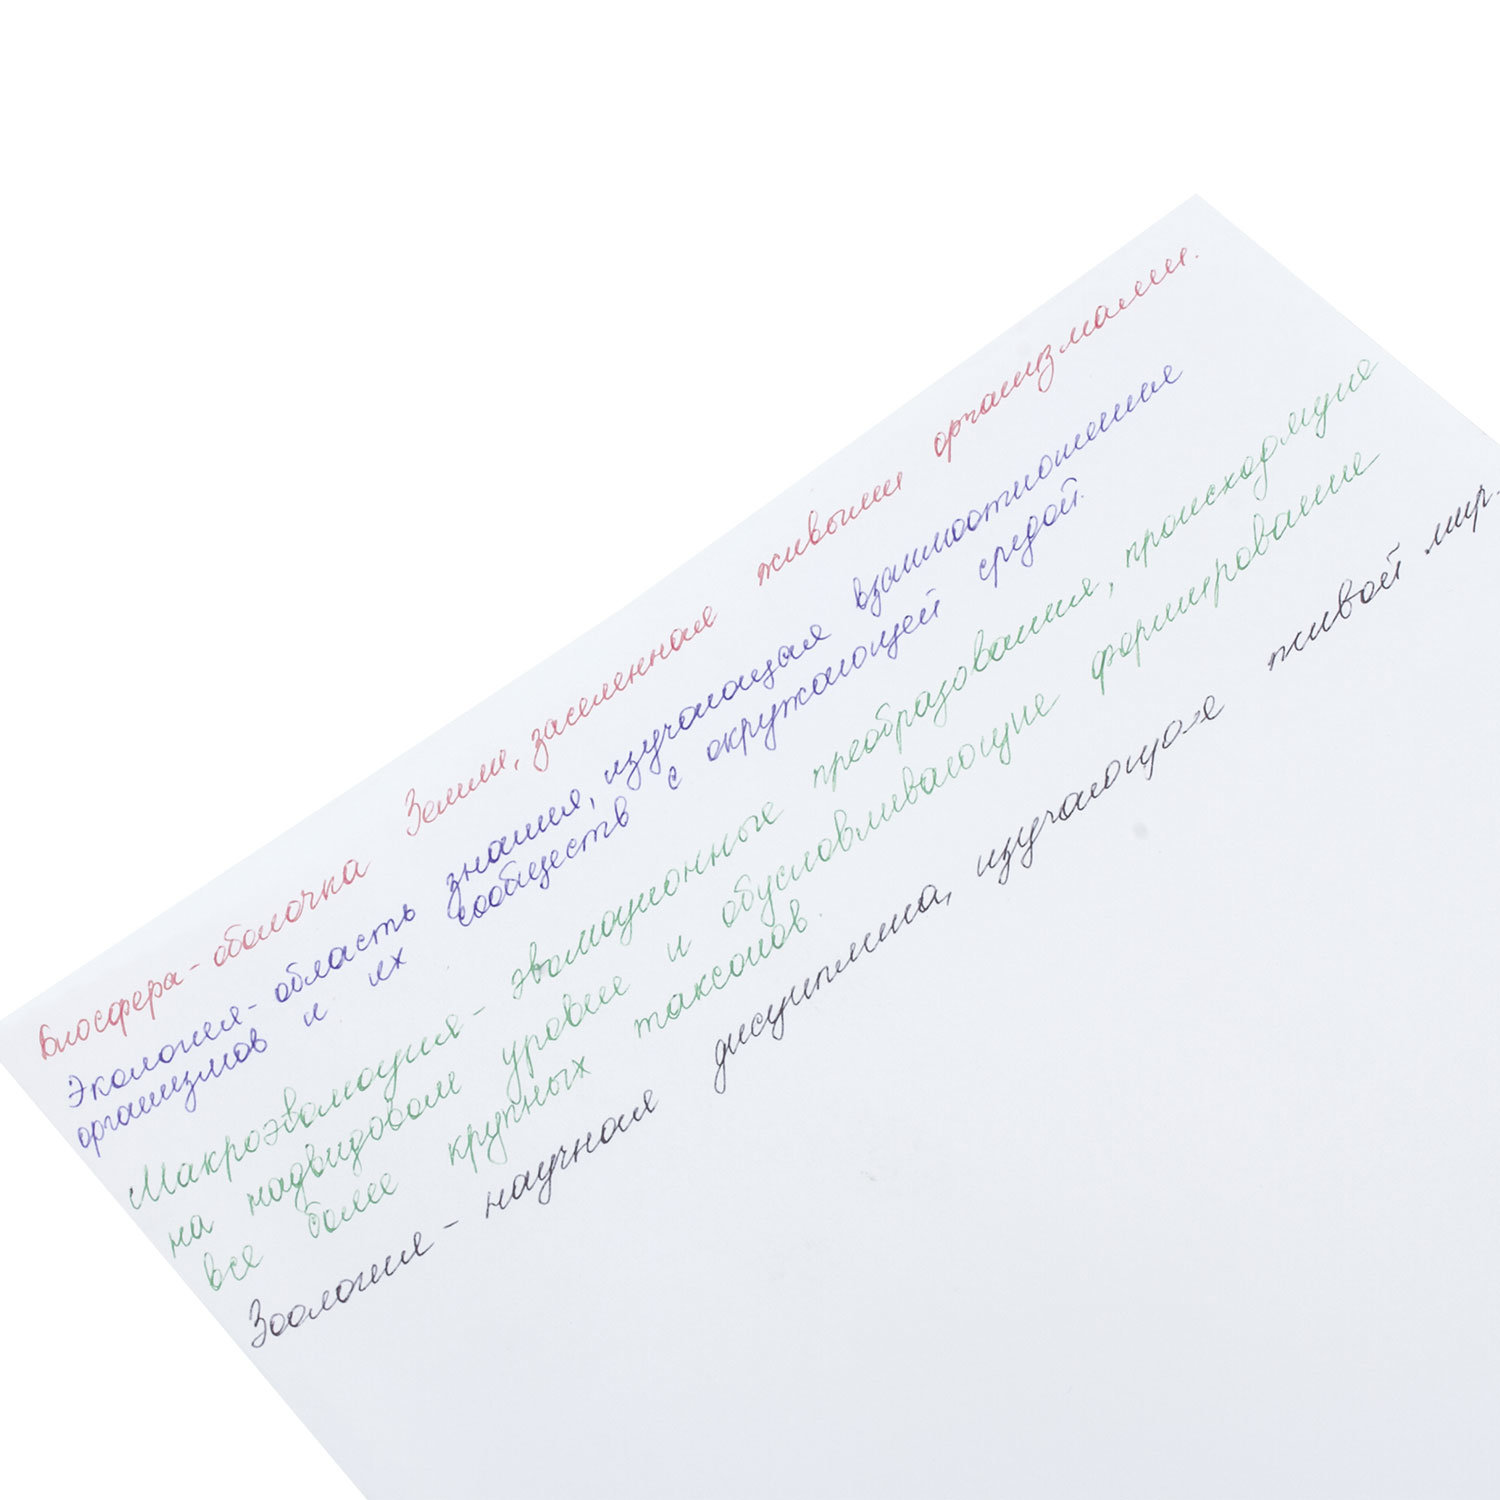 Биосфера - оболочка Земли, заселенная живыми организмами.
Экология - область знания, изучающая взаимоотношение
организмов и их сообществ с окружающей средой.
Макроэволюция - эволюционные преобразования, происходящие
на надвидовом уровне и обусловливающие формирование
все более крупных таксонов.
Зоология - научная дисциплина, изучающая живой мир.